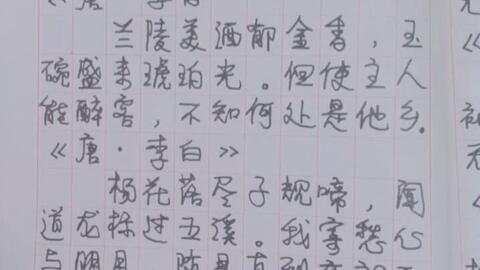 兰陵美酒郁金香，玉
碗盛来琥珀光。但使主人
能醉客，不知何处是他乡。
《唐·李白》
杨花落尽子规啼，闻
道龙标过五溪。我寄愁心
与明月